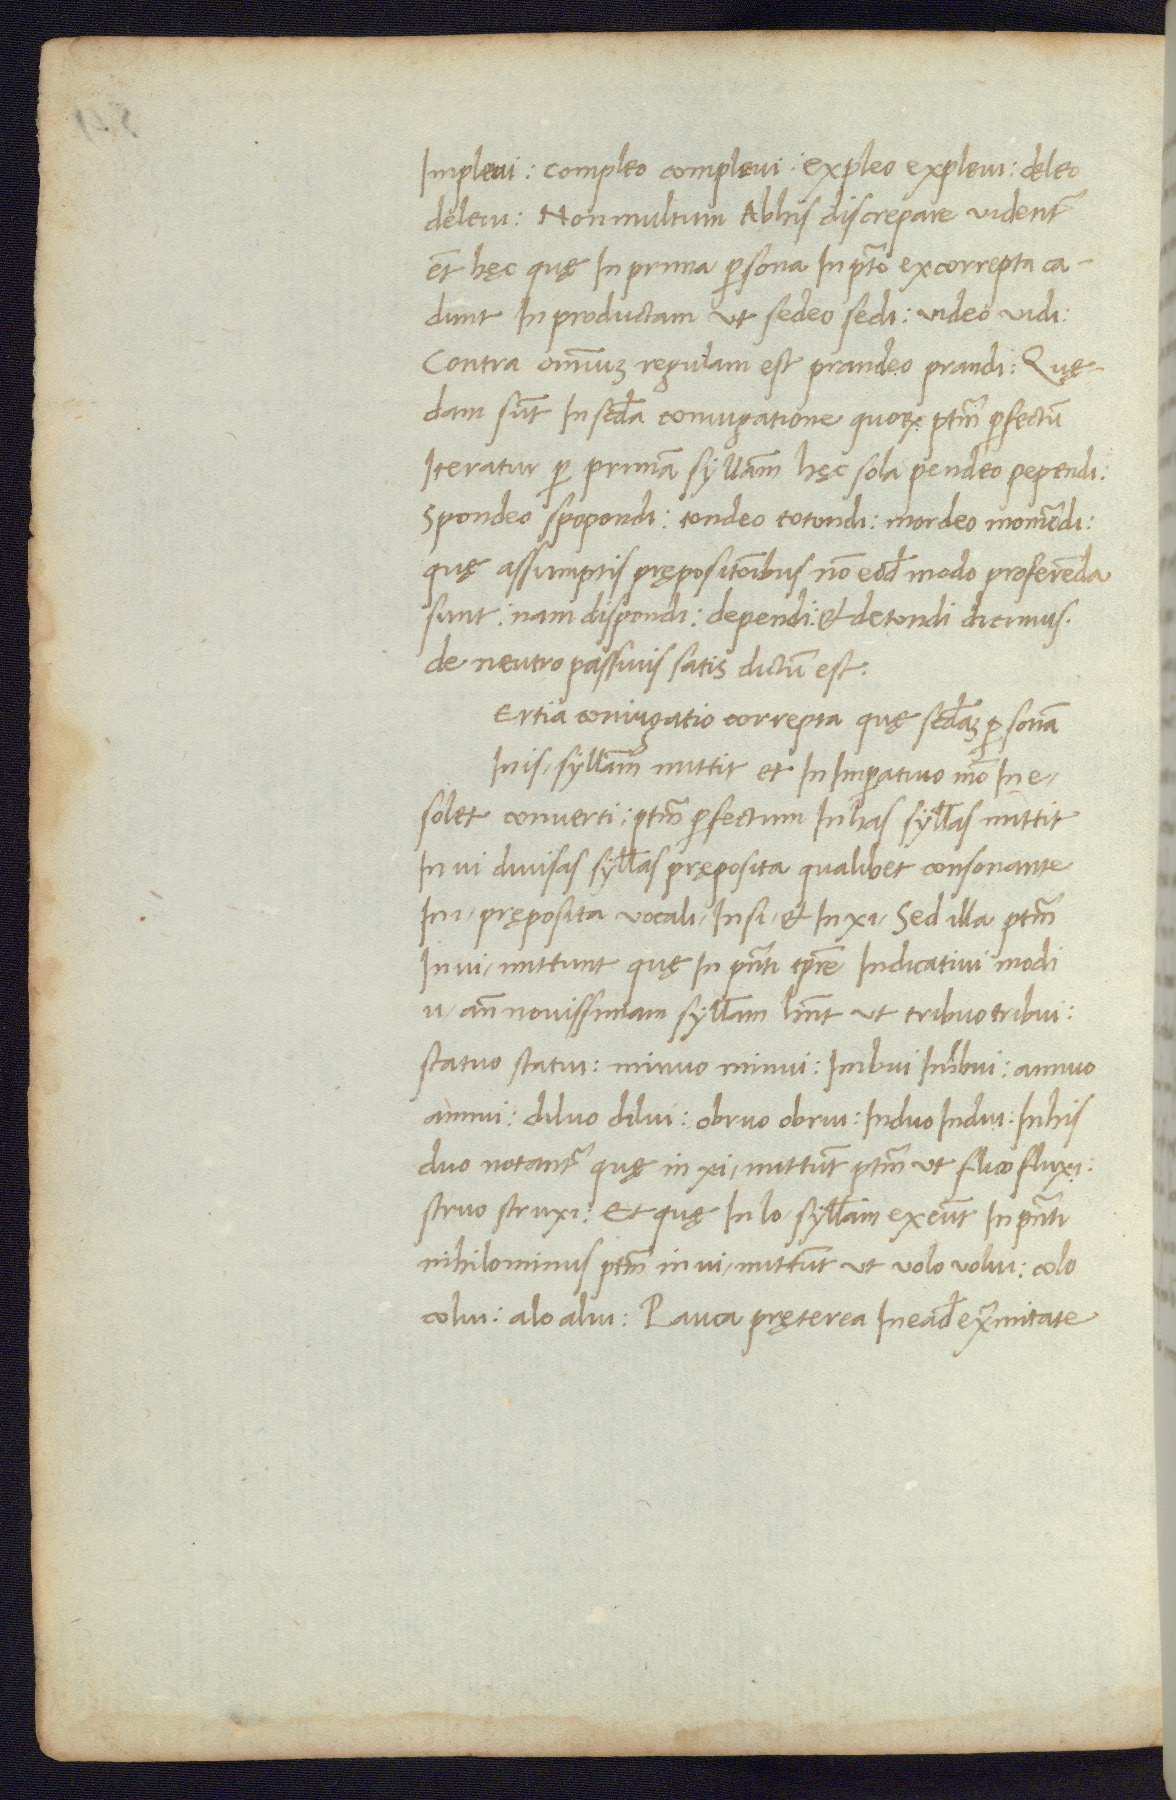 Impleui : compleo compleui · expleo expleui : deleo
deleui : Non multum Ab his discrepare uident̃
ēt hęc quę In prima p̱sona In p̃to ex correpta ca-
dunt In productam ut sedeo sedi : uideo uidi :
Contra om̄iuꝫ regulam est prandeo prandi : Quę-
dam sūt In scd̄a coniugatione quoꝝ ptm̄ p̱fectū
Iteratur p̱ primā syllam̄ hęc sola pendeo pependi :
Spondeo spopondi : tondeo totondi : mordeo momēdi :
quę assumptis prępositōibus nō eod̄ modo proferēda
sunt : nam dispondi : dependi : & detondi dicimus .
de neutro passiuis satis dictū est .
Ertia coniugatio correpta quę scd̄aꝫ p̱sonā
In is / syllam̄ mittit et In Imp̱atiuo mō In e /
solet conuerti : ptm̄ p̱fectum In has syll̄as mittit
In ui diuisas syll̄as pręposita qualibet consonante
In i / pręposita vocali / In si / & In xi / Sed illa ptm̄
In ui / mittunt quę In pn̄ti tp̄re Indicatiui modi
u / an̄ nouissimam syll̄am hn̄t ut tribuo tribui :
statuo statui : minuo minui : Imbui Imbui : annuo
annui : diluo dilui : obruo obrui : Induo Indui : In his
duo notant̃ quę in xi / mittūt ptm̄ ut fluo fluxi :
struo struxi : Et quę In lo syll̄am exeūt In pn̄ti
nihilominus ptm̄ in ui / mittūt ut uolo uolui : colo
colui : alo alui : Pauca pręterea In ead̄ extr̄mitate